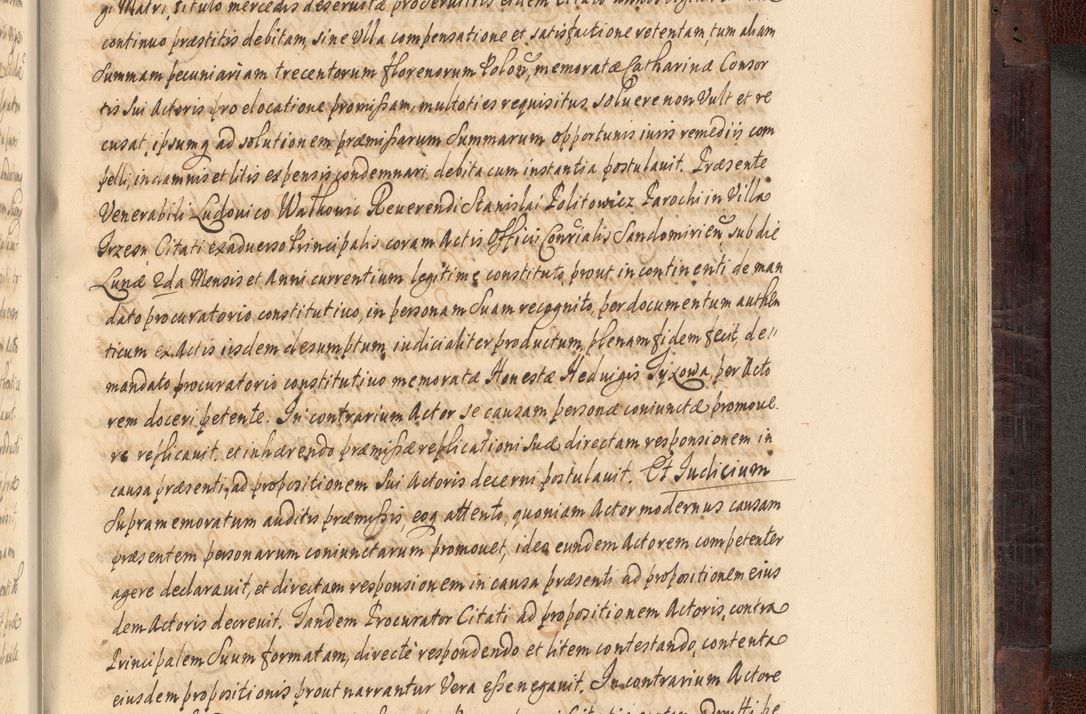 gi Matri, titulo mercedis deservitæ pro servitiis eidem Citato
continuo præstitis debitam, sine ulla compensatione et satisfactione retentam, tum aliam
Summam pecuniariam trecentorum florenorum Polon, memoratæ Catharinæ Consor
tis Sui Actoris pro elocatione promissam, multoties requisitus, soluere non Vult et re
cusat, ipsumq ad solutionem præmissarum Summarum opportunis iuris remediis com
pelli, in damnis et litis expensis condemnari, debita cum instantia postulauit. Præsente
Venerabili Ludouico Wathouic Reuerendi Stanislai Politowicz Parochi in Villa
Citati ex aduerso Principalis coram Actis Officii Conrialis Sandomirien, sub die
Lunæ 2da Mensis et Anni currentium legitime constituto, prout in continenti de man
dato procuratorio constitutiuo, in personam Suam recognito, per documentum authen
ticum ex Actis iisdem desumptum, iudicialiter productum, plenam fidem fecit, de
mandato procuratorio constitutiuo memoratæ Honestæ Heduigis Tyzowa, per Acto
rem doceri petente. In contrarium Actor se causam personæ coniunctæ promoue
re replicauit, et inhærendo præmissæ replicationi suæ directam responsionem in
causa præsenti, ad propositionem Sui Actoris decerni postulauit. Et Iudicium
Supramemoratum auditis præmissis, eoq attento, quoniam Actor modernus causam
præsentem personarum coniunctarum promouet, ideo eundem Actorem competenter
agere declarauit, et directam responsionem in causa præsenti ad propositionem eius
dem Actoris decreuit. Tandem Procurator Citati ad propositionem Actoris, contra
Principalem Suum formatam, directe respondendo et litem contestando, contenta
eiusdem propositionis prout narrantur Vera esse negauit. In contrarium Actore